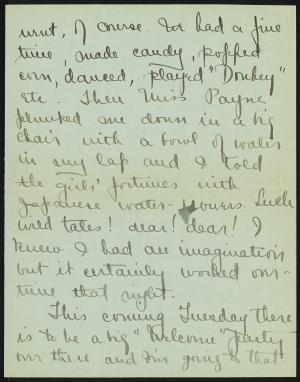 went, of course. We had a fine
time, made candy, popped
corn, danced, played "Donkey"
etc. Then Miss Payne
plumped me down in a big
chair with a bowl of water
in my lap and I told
the girls' fortunes with
Japanese water-flowers. Such
wild tales! dear! dear! I
knew I had an imagination
but it certainly worked over-
time that night.
This coming Tuesday there
is to be a big "Welcome" party
over there and I'm going to that